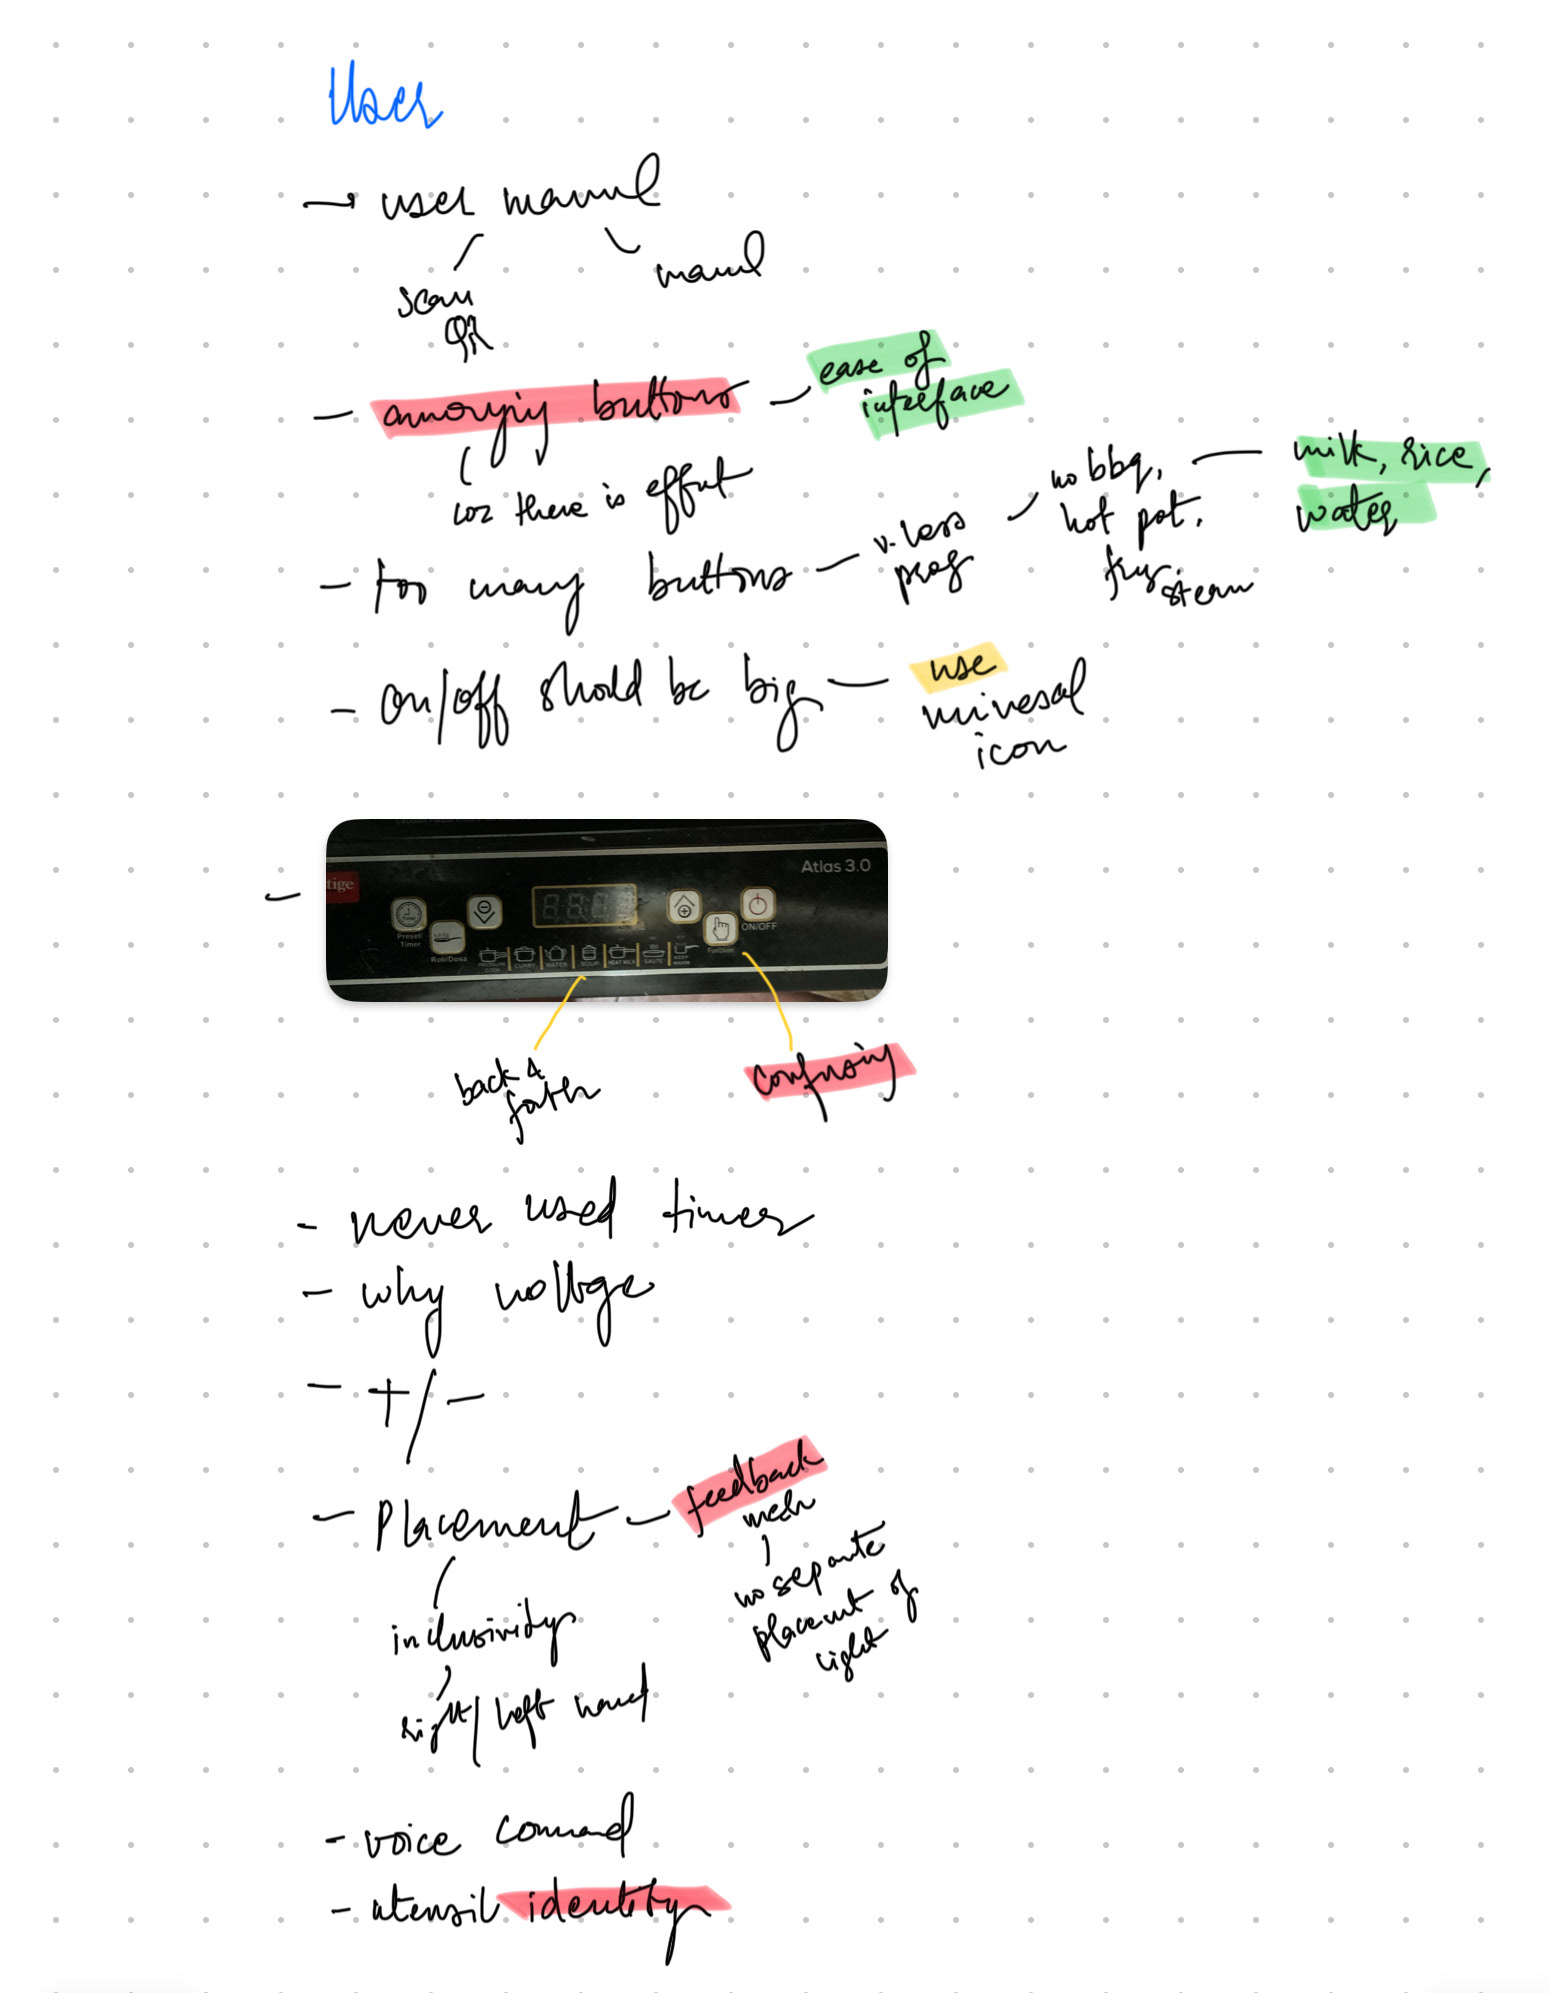 User
→ user manual
scan
QR
manual
- annoying buttons - ease of
interface
coz there is effort
- too many buttons - v. less
prog
no bbq,
hot pot,
fry,
steam
milk, rice,
water
- on/off should be big - use
universal
icon
tige
Atlas 3.0
Preset/
Timer
Roti/Dosa
PRESSURE
COOK
CURRY
WATER
SOUP
HEAT MILK
SAUTE
KEEP
WARM
Function
ON/OFF
back &
forth
confusing
- never used timer
- why voltage
- +/-
- Placement - feedback
mech
no separate
placement of
light
inclusivity
right/left hand
- voice command
- utensil identity